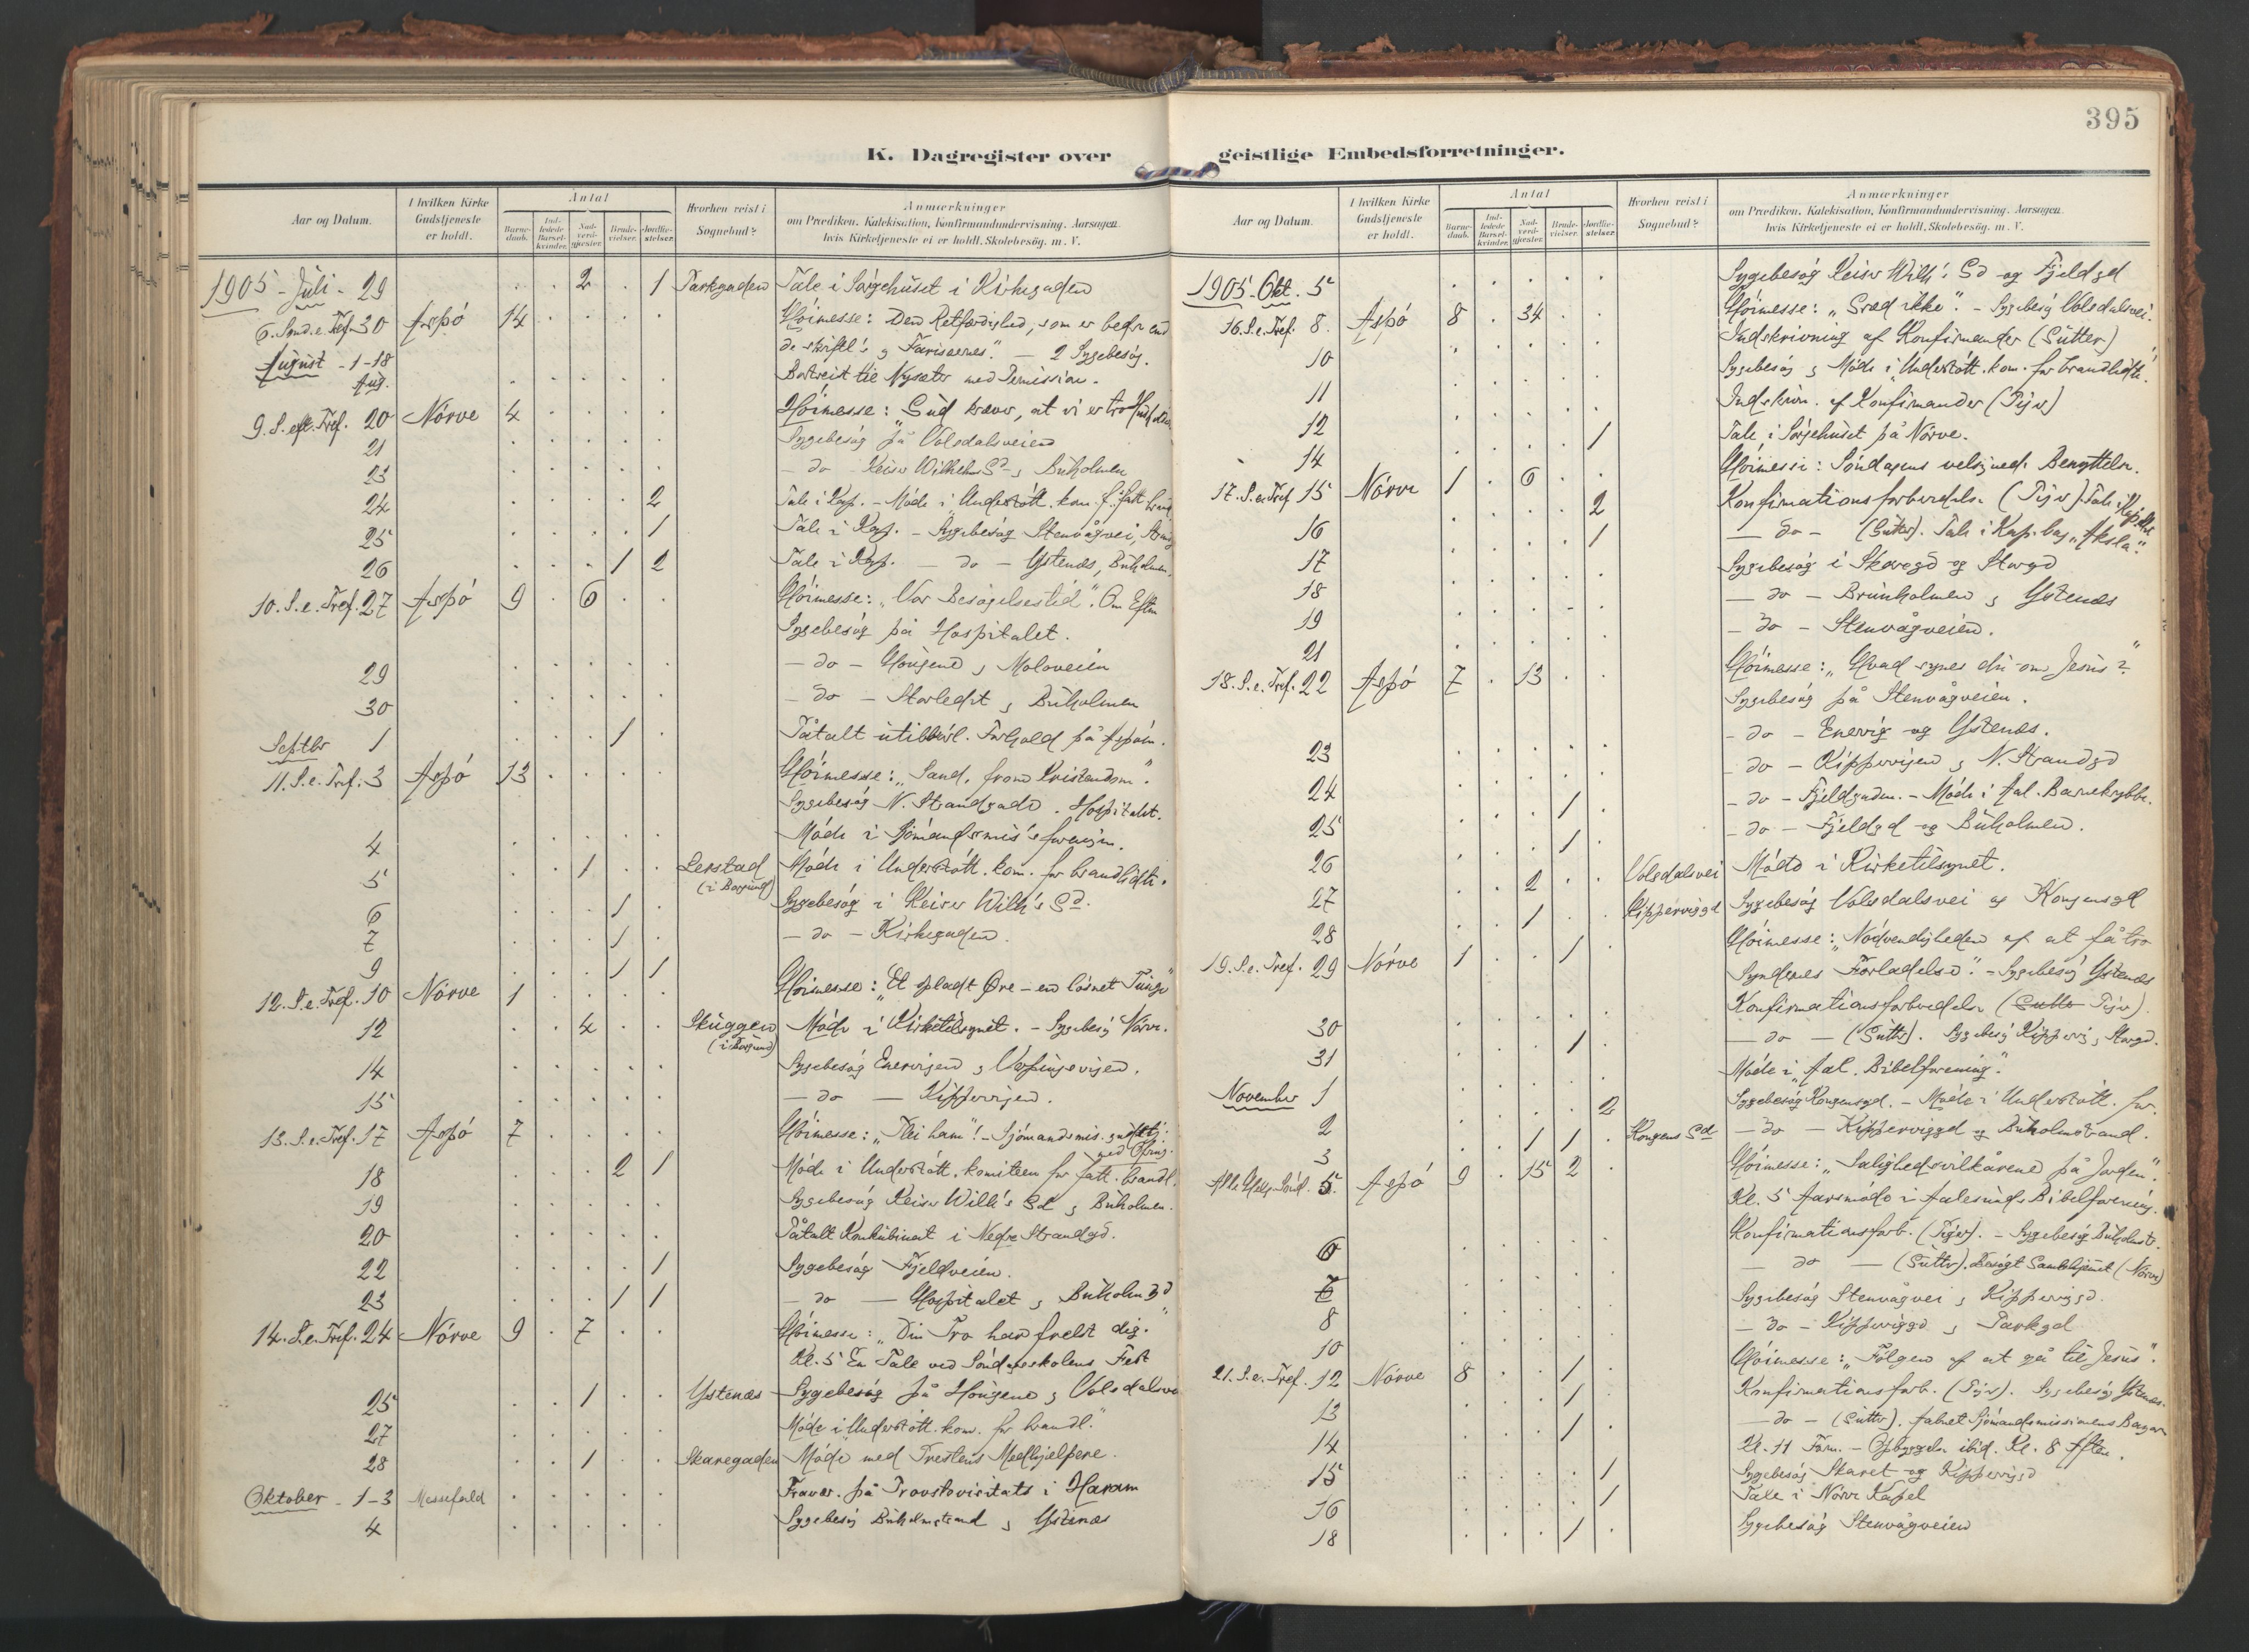 395
K. Dagregister over geistlige Embedsforretninger.
Aar og Datum. I hvilken Kirke Gudstjeneste er holdt. Antal Barnedaab. Indledede Barselkvinder. Nadverdgjester. Brudevielser. Jordfæstelser. Hvorhen reist i Sognebud? Anmærkninger om Prædiken, Katekisation, Konfirmandundervisning, Aarsagen hvis Kirketjeneste ei er holdt, Skolebesøg, m. V.
1905 - Juli - 29 . . 2 . 1 Parkgaden Tale i Sørgehuset i Kirkegaden
6. Sønd. e. Tref. 30 Aspö 14 . . . . Høimesse: Den Retfærdighed, som er bedre end
de skriftl's og Farisæernes." — 2 Sygebesøg.
August - 1-18 Aug. . . . . . Bortreist til Nysæter med Permission.
9. S. eft. Tref. 20 Nörve 4 . . . . Höimesse: "Gud kræver, at vi er tro
21 . . . . . Sygebesøg på Volsdalsveien
23 . . . . . — do — Keiser Wilhelms Gd. og Buholmen
24 . . . . 2 Tale i Kap. - Möde i Understött. kom. f. fatt. brand
25 . . . . 1 Tale i Kap. - Sygebesøg Stenvågvei,
26 . . . 1 2 Tale i Kap. — do — Ystenes, Buholmen.
10. S. e. Tref. 27 Aspö 9 . 6 . . Höimesse: "Vor Besøgelsestid". Om Eftm
Sygebesøg på Hospitalet.
29 . . . . . — do — Hougene og Moloveien
30 . . . . . — do — Storledet og Buholmen
Septbr 1 . . . 1 . Påtalt utilbörl. Forhold på Aspöen.
11. S. e. Tref. 3 Aspö 13 . . . . Höimesse: "Sand, from Kristendom".
Sygebesøg N. Strandgade. Hospitalet.
4 . . . . . Möde i Sjömandsmis's forening.
5 . . 1 . . Lerstad (i Borgund) Möde i Understött. kom. for brandlidte.
6 . . . 1 . Sygebesøg i Keiser Wilh's Gd.
7 . . . 1 . — do — Kirkegaden.
9 . . . 1 1
12. S. e. Tref. 10 Nörve 1 . . . . Höimesse: "Et opladt Øre - en løsnet Tunge"
12 . . 4 . . Skuggen (i Borgund) Möde i Kirketilsynet. - Sygebesög Nörve.
14 . . . . . Sygebesøg Enervigen og Vorpingsvigen.
15 . . . . . — do — Kippervigen.
13. S. e. Tref. 17 Aspö 7 . . . . Höimesse: "Plei ham"! - Sjömandsmis. gudstj. med Ofring.
18 . . . 2 1 Möde i Understött. komiteen for fatt. brandl.
19 . . . . . Sygebesøg Keiser Wilh's Gd og Buholmen.
20 . . . . . Påtalt Konkubinat i Nedre Strandgd.
22 . . . . 1 Sygebesøg Fjeldveien.
23 . . . 1 1 — do — Hospitalet og Buholm gd
14. S. e. Tref. 24 Nörve 9 . 7 . . Höimesse: "Din Tro har frelst dig."
Kl. 5 En Tale ved Söndagsskolens Fest
25 . . 1 . . Ystenes Sygebesøg på Hougene og Volsdalsvei
27 . . . . . Möde i "Understött. kom. for brandl."
28 . . 1 . . Skaregaden Möde med Prestens Medhjelpere.
Oktober - 1-3 Messefald . . . . . Fravær. på Provstevisitats i Haram
4 . . . . . Sygebesög Buholmstrand og Ystenes
1905. Okt. 5 . . . . . Sygebesøg Keiser Wilh's Gd og Fjeldgd
16. S. e. Tref. 8. Aspö 8 . 34 . . Höimesse: "Græd ikke". - Sygebesøg Volsdalsvei.
10 . . . . . Indskrivning af Konfirmander (Gutter)
11 . . . . . Sygebesøg og Möde i "Understött. kom. for brandlidte".
12 . . . . . Indskrivn. af Konfirmander (Piger)
14 . . . . 1 Tale i Sörgehuset på Nörve.
17. S. e. Tref 15 Nörve 1 . 6 . . Höimesse: Söndagens velsignede Benyttelse.
16 . . . . 2 Konfirmationsforberedelse (Piger). Tale i Kapellet
17 . . . . 1 — do — (Gutter). Tale i Kap. bag "Aksla".
18 . . . . . Sygebesøg i Skaregd og Storgd
19 . . . . . — do — Brunholmen og Ystenes
21 . . . . . — do — Stenvågveien.
18. S. e. Tref. 22 Aspö 7 . 13 . . Höimesse: "Hvad synes du om Jesus?"
Sygebesøg på Stenvågveien.
23 . . . . . — do — Enevig og Ystenes.
24 . . . . . — do — Kippervigen og N. Strandgd
25 . . . 1 . — do — Fjeldgaden. - Möde i Aal. Barnekrybbe.
26 . . . 1 . — do — Fjeldgd og Buholmen.
27 . . 2 . . Volsdalsvei Möde i Kirketilsynet.
28 . . 1 . . Kippervigd Sygebesøg Volsdalsvei og Kongensgd
19. S. e. Tref. 29 Nörve 1 . . 1 . Höimesse: "Nödvendigheden af at få tro
Syndernes Forladelse". - Sygebesög Ystenes
30 . . . . . Konfirmationsforberedelse (Gutter Piger).
31 . . . 1 . — do — (Gutter). Sygebesög Kipperv. og Storgd.
November 1 . . . . . Möde i "Aal. Bibelforening".
2 . . . . 2 Sygebesøg Kongensgd. - Möde i Understött. for.
3 . . 1 1 . Kongens Gd — do — Kippervigd og Buholmstrand.
Alle Helg. Sönd. 5. Aspö 9 . 15 2 . Höimesse: "Salighedsvilkårene på Jorden".
Kl. 5 Aarsmöde i Aalesunds Bibelforening.
6 . . . . . Konfirmationsforb. (Piger). - Sygebesög Buholmstr.
7 . . . . . — do — (Gutter). Besøgt Samlehjemmet (Nörve)
8 . . . . . Sygebesøg Stenvågvei og Kippervgd.
10 . . . . . — do — Kippervigd og Parkgd
21. S. e. Tref. 12 Nörve 8 . . 1 . Höimesse: "Fölgen af at gå til Jesus".
13 . . . 1 . Konfirmationsforb. (Piger). Sygebesög Ystenes.
14 . . . 1 . — do — (Gutter). Aabnet Sjömandsmissionens Bazar
Kl. 11 Form. - Opbyggelse ibid. Kl. 8 Aften.
15 . . . . 1 Sygebesøg Skaret og Kippervigd
16 . . . . 1 Tale i Nörve Kapel
18 . . . 1 . Sygebesøg Stenvågveien